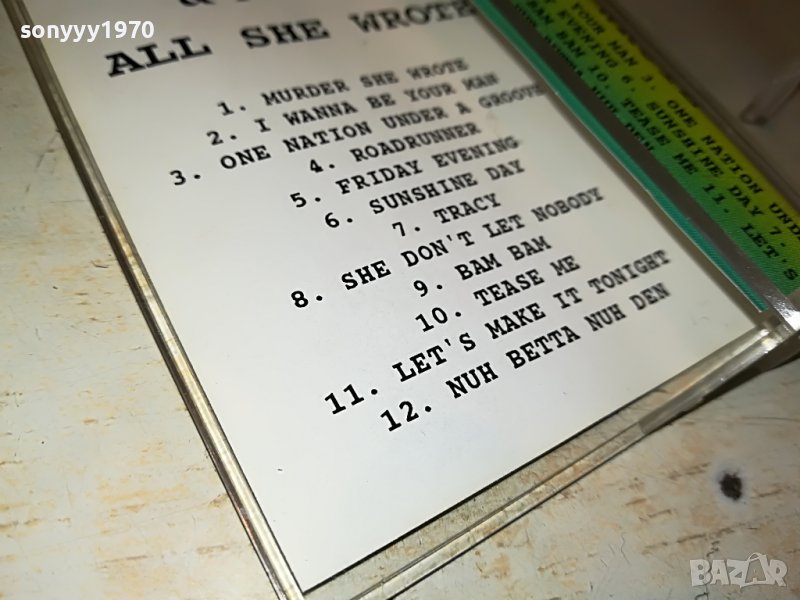 sonyyy1970
&
ALL SHE WROTE
1. MURDER SHE WROTE
2. I WANNA BE YOUR MAN
3. ONE NATION UNDER A GROOVE
4. ROADRUNNER
5. FRIDAY EVENING
6. SUNSHINE DAY
7. TRACY
8. SHE DON'T LET NOBODY
9. BAM BAM
10. TEASE ME
11. LET'S MAKE IT TONIGHT
12. NUH BETTA NUH DEN
YOUR MAN 3. ONE NATION UND
EVENING 6. SUNSHINE DAY 7.
BAM BAM 10. TEASE ME 11. LET'S
NUH DEN
BAZAR